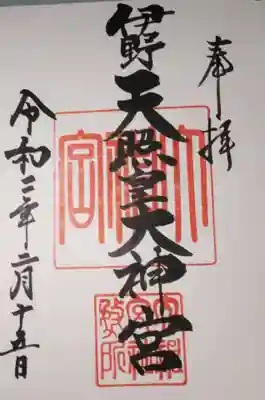 奉拝
伊野天照皇大神宮
令和二年二月十五日